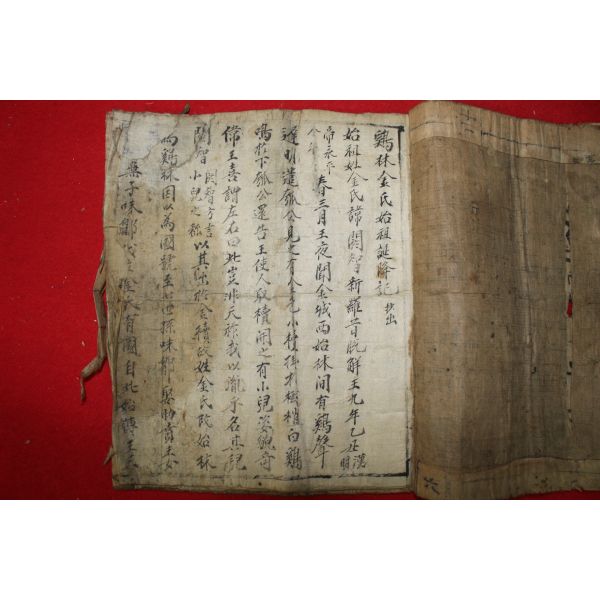 鷄林金氏始祖誕降記 抄出
始祖姓金氏諱閼智新羅昔脫解王九年乙丑漢明
帝永平 春三月王夜聞金城西始林間有鷄聲
遲明遣瓠公見之有金色小櫝掛於樹梢白鷄
鳴於下瓠公還告王使人取櫝開之有小兒姿貌奇
偉王喜謂左右曰此豈非天祚我以胤乎名其兒
閼智 閼智方言小兒之稱 以其出於金櫝故姓金氏改始林
爲鷄林因以爲國號至 世孫味鄒娶助賁王女
無子味鄒代立 有國自此始